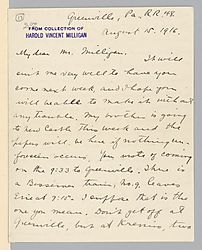 Greenville, Pa., R.R. 48.
FROM COLLECTION OF
HAROLD VINCENT MILLIGAN
August 15, 1916.
My dear Mr. Milligan,
It will
suit me very well to have you
come next week, and I hope you
will be able to make it without
any trouble. My brother is going
to New Castle this week and the
papers will be here if nothing un-
foreseen occurs. You wrote of coming
on the 9:33 to Greenville. There is
a Bessemer train, No. 9, leaves
Erie at 9:15. I suppose that is the
one you mean. Don't get off at
Greenville, but at Kremis, two